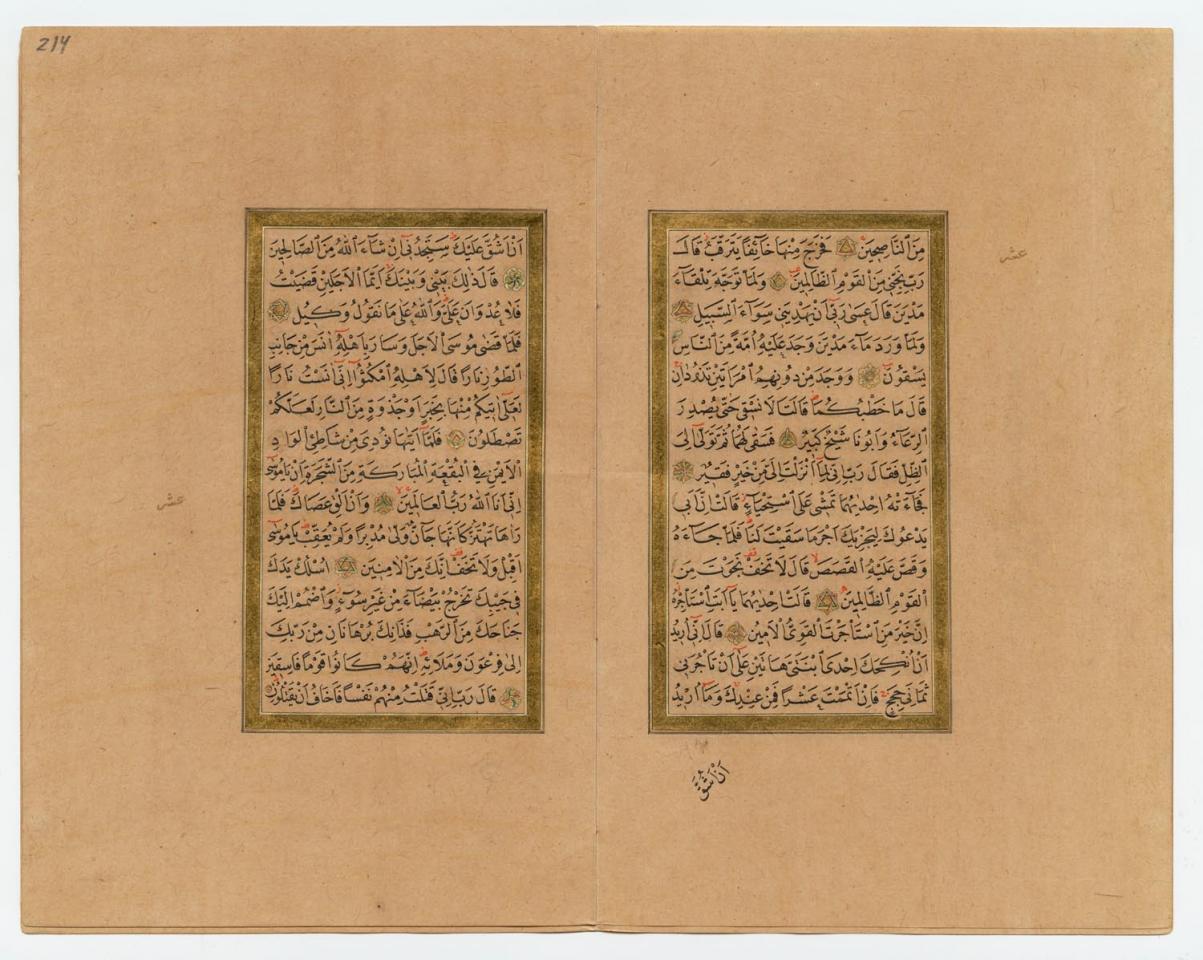 مِنَ النَّاصِحِينَ فَخَرَجَ مِنْهَا خَآئِفًا يَتَرَقَّبُ قَالَ
رَبِّ نَجِّنِي مِنَ الْقَوْمِ الظَّالِمِينَ وَلَمَّا تَوَجَّهَ تِلْقَآءَ
مَدْيَنَ قَالَ عَسٰى رَبِّىٓ اَنْ يَهْدِيَنِى سَوَآءَ السَّبِيلِ
وَلَمَّا وَرَدَ مَآءَ مَدْيَنَ وَجَدَ عَلَيْهِ اُمَّةً مِنَ النَّاسِ
يَسْقُونَ وَوَجَدَ مِنْ دُونِهِمُ امْرَاَتَيْنِ تَذُودَانِ
قَالَ مَا خَطْبُكُمَا قَالَتَا لَا نَسْقِى حَتّٰى يُصْدِرَ
الرِّعَآءُ وَاَبُونَا شَيْخٌ كَبِيرٌ فَسَقٰى لَهُمَا ثُمَّ تَوَلّٰى اِلَى
الظِّلِّ فَقَالَ رَبِّ اِنِّى لِمَآ اَنْزَلْتَ اِلَىَّ مِنْ خَيْرٍ فَقِيرٌ
فَجَآءَتْهُ اِحْدٰيهُمَا تَمْشِى عَلَى اسْتِحْيَآءٍ قَالَتْ اِنَّ اَبِى
يَدْعُوكَ لِيَجْزِيَكَ اَجْرَ مَا سَقَيْتَ لَنَا فَلَمَّا جَآءَهُ
وَقَصَّ عَلَيْهِ الْقَصَصَ قَالَ لَا تَخَفْ نَجَوْتَ مِنَ
الْقَوْمِ الظَّالِمِينَ قَالَتْ اِحْدٰيهُمَا يَآ اَبَتِ اسْتَاْجِرْهُ
اِنَّ خَيْرَ مَنِ اسْتَاْجَرْتَ الْقَوِىُّ الْاَمِينُ قَالَ اِنِّىٓ اُرِيدُ
اَنْ اُنْكِحَكَ اِحْدَى ابْنَتَىَّ هَاتَيْنِ عَلٰٓى اَنْ تَاْجُرَنِى
ثَمَانِىَ حِجَجٍ فَاِنْ اَتْمَمْتَ عَشْرًا فَمِنْ عِنْدِكَ وَمَآ اُرِيدُ
اَنْ اَشُقَّ
عشر
214
اَنْ اَشُقَّ عَلَيْكَ سَتَجِدُنِىٓ اِنْ شَآءَ اللّٰهُ مِنَ الصَّالِحِينَ
قَالَ ذٰلِكَ بَيْنِى وَبَيْنَكَ اَيَّمَا الْاَجَلَيْنِ قَضَيْتُ
فَلَا عُدْوَانَ عَلَىَّ وَاللّٰهُ عَلٰى مَا نَقُولُ وَكِيلٌ
فَلَمَّا قَضٰى مُوسَى الْاَجَلَ وَسَارَ بِاَهْلِهٖٓ اٰنَسَ مِنْ جَانِبِ
الطُّورِ نَارًا قَالَ لِاَهْلِهِ امْكُثُوٓا اِنِّىٓ اٰنَسْتُ نَارًا
لَعَلِّىٓ اٰتِيكُمْ مِنْهَا بِخَبَرٍ اَوْ جَذْوَةٍ مِنَ النَّارِ لَعَلَّكُمْ
تَصْطَلُونَ فَلَمَّآ اَتٰيهَا نُودِىَ مِنْ شَاطِئِ الْوَادِ
الْاَيْمَنِ فِى الْبُقْعَةِ الْمُبَارَكَةِ مِنَ الشَّجَرَةِ اَنْ يَامُوسٰٓى
اِنِّىٓ اَنَا اللّٰهُ رَبُّ الْعَالَمِينَ وَاَنْ اَلْقِ عَصَاكَ فَلَمَّا
رَاٰهَا تَهْتَزُّ كَاَنَّهَا جَآنٌّ وَلّٰى مُدْبِرًا وَلَمْ يُعَقِّبْ يَامُوسٰٓى
اَقْبِلْ وَلَا تَخَفْ اِنَّكَ مِنَ الْاٰمِنِينَ اُسْلُكْ يَدَكَ
فِى جَيْبِكَ تَخْرُجْ بَيْضَآءَ مِنْ غَيْرِ سُوٓءٍ وَاضْمُمْ اِلَيْكَ
جَنَاحَكَ مِنَ الرَّهْبِ فَذَانِكَ بُرْهَانَانِ مِنْ رَبِّكَ
اِلٰى فِرْعَوْنَ وَمَلَائِهٖ اِنَّهُمْ كَانُوا قَوْمًا فَاسِقِينَ
قَالَ رَبِّ اِنِّى قَتَلْتُ مِنْهُمْ نَفْسًا فَاَخَافُ اَنْ يَقْتُلُونِ
عشر